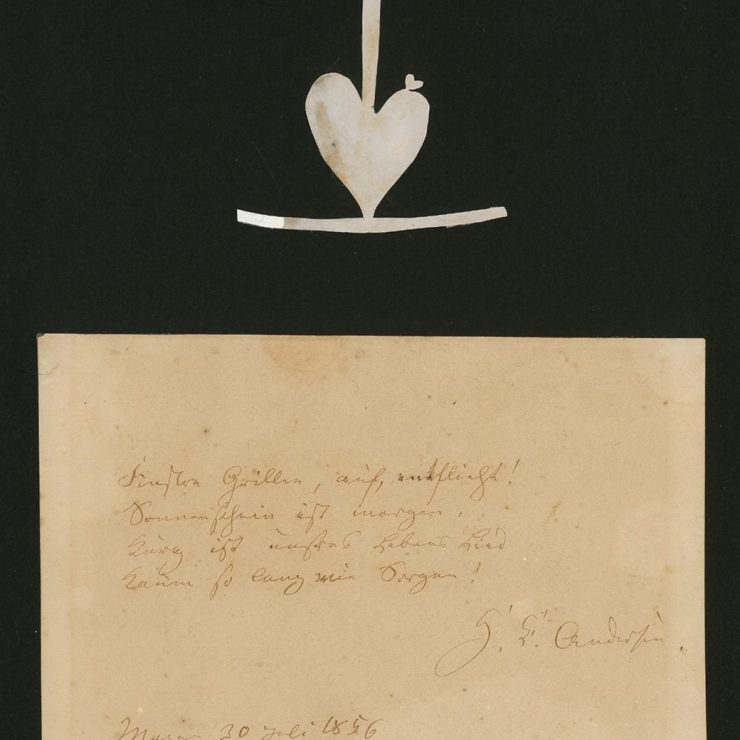 Finstre Grillen, auf, entflieht!
Sonnenschein ist morgen,
Kurz ist unsres Lebens Lied
Kaum so lang wie Sorgen!
H. C. Andersen.
30 Juli 1856